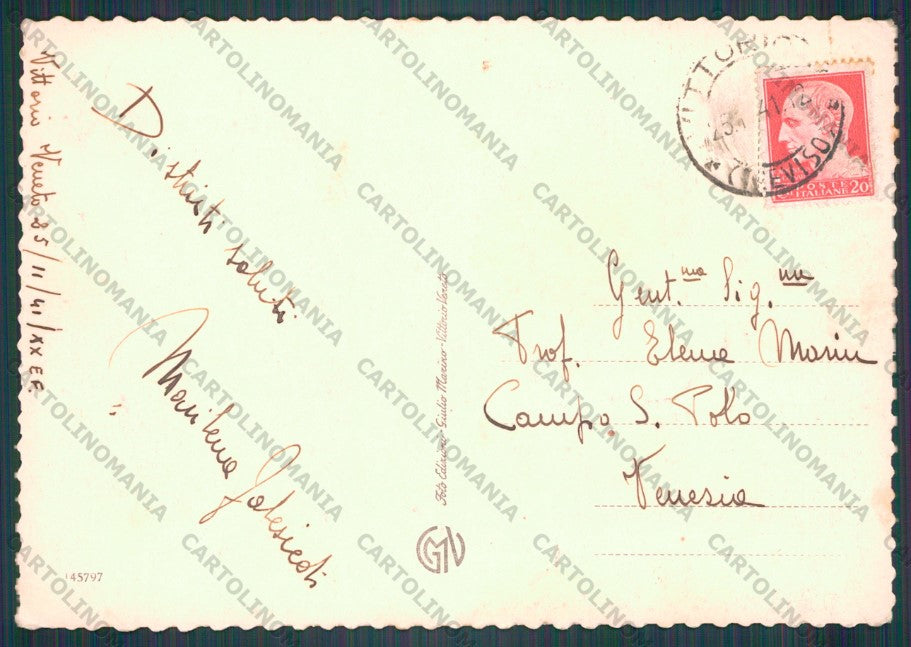 Vittorio Veneto 25/11/41/XX E.F.
Distinti saluti
Marilena
Gent.ma Sig.na
Prof. Elena Marin
Campo S. Polo
Venezia
Foto Edizione Giulio Marino - Vittorio Veneto
GMV
145797
VITTORIO
23. 41.
(TREVISO)
POSTE
ITALIANE 20
CARTOLINOMANIA